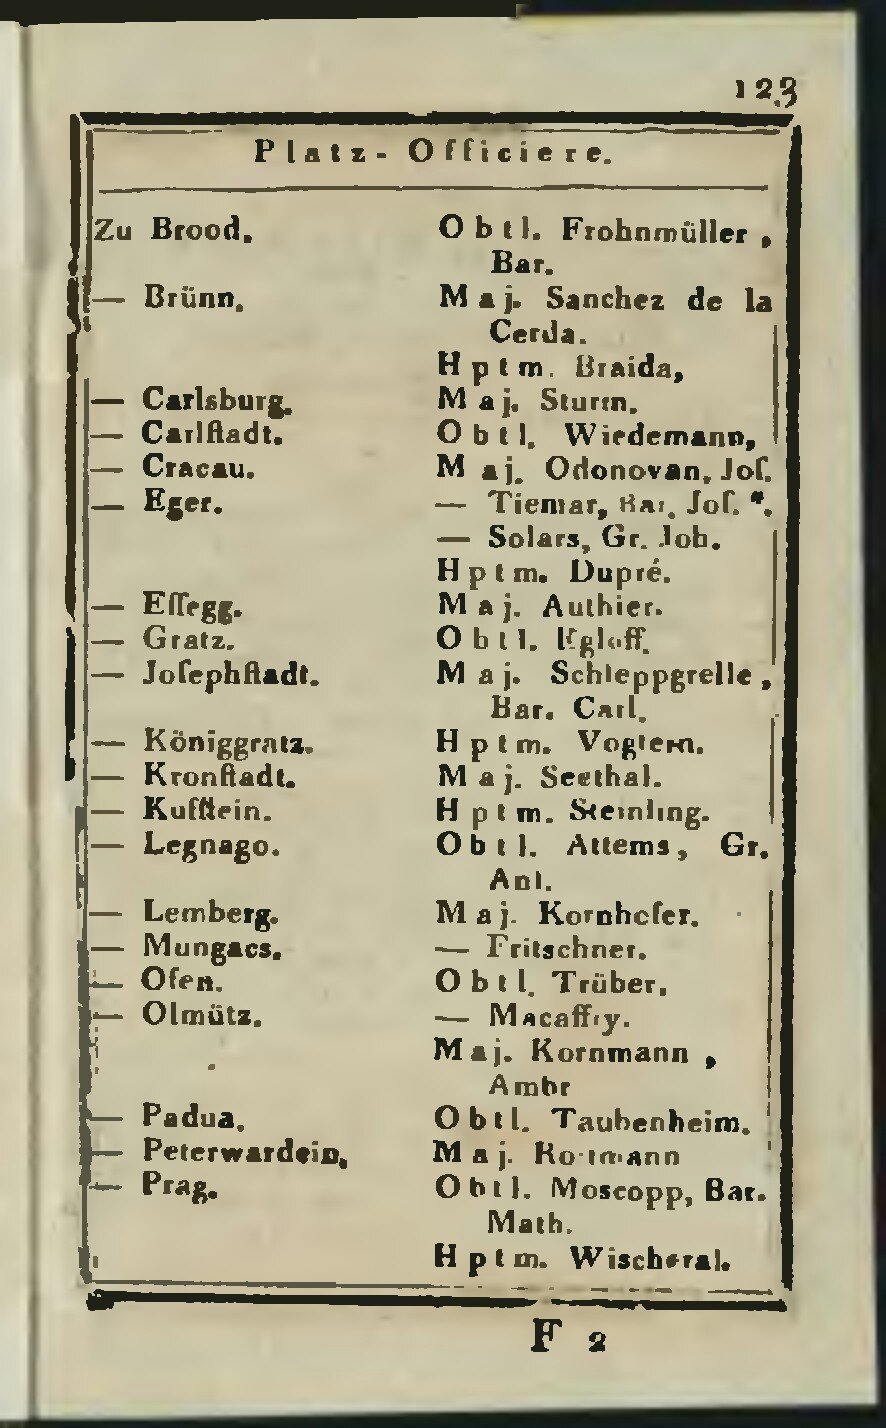 123
Platz-Officiere.
Zu Brood. Obtl. Frohnmüller,
Bar.
— Brünn. Maj. Sanchez de la
Cerda.
Hptm. Braida,
— Carlsburg. Maj. Sturm.
— Carlſtadt. Obtl. Wiedemann,
— Cracau. Maj. Odonovan, Joſ.
— Eger. — Tiemar, Bar. Joſ. *.
— Solars, Gr. Joh.
Hptm. Dupré.
— Eſſegg. Maj. Authier.
— Gratz. Obtl. Egloff.
— Joſephſtadt. Maj. Schleppgrelle,
Bar. Carl.
— Königgratz. Hptm. Vogtern.
— Kronſtadt. Maj. Seethal.
— Kufſtein. Hptm. Steinling.
— Legnago. Obtl. Attems, Gr.
Ant.
— Lemberg. Maj. Kornhofer.
— Mungacs. — Fritschner.
— Ofen. Obtl. Trüber.
— Olmütz. — Macaffry.
Maj. Kornmann,
Ambr
— Padua. Obtl. Taubenheim.
— Peterwardein. Maj.
— Prag. Obtl. Moscopp, Bar.
Math.
Hptm. Wischeral.
F 2